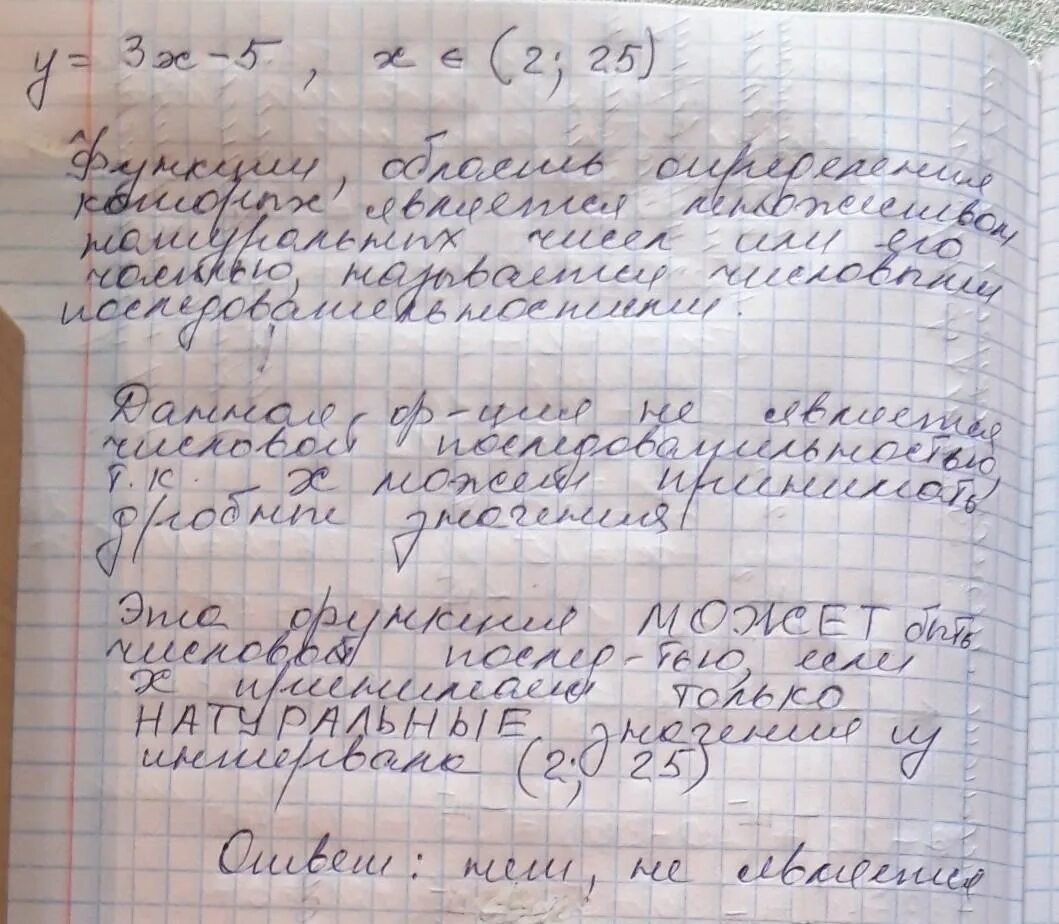 y = 3x - 5 , x ∈ (2; 25)
Функции, область определения
которых является множеством
натуральных чисел или его
частью, называется числовыми
последовательностями.
Данная ф-ция не является
числовой последовательностью,
т.к. x может принимать
дробные значения
Эта функция МОЖЕТ быть
числовой послед-тью, если
x принимает только
НАТУРАЛЬНЫЕ значения из
интервала (2; 25)
Ответ: нет, не является